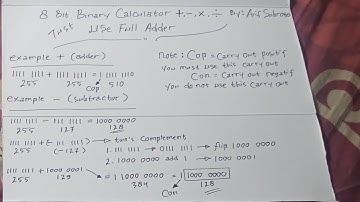 8 Bit Binary Calculator +, -, ×, ÷ By: Arif Subroto
Just Use Full Adder
example + (adder)
1111 1111 + 1111 1111 = 1 1111 1110
255 255 Cop 510
note: Cop = Carry out positif
You must use this carry out
Con = Carry out negatif
You do not use this carry out
example - (subtractor)
1111 1111 - 0111 1111 = 1000 0000
255 127 128
1111 1111 + (- 0111 1111) → two's complement
255 (-127) 1. 0111 1111 → flip 1000 0000
2. 1000 0000 add 1 → 1000 0001
1111 1111 + 1000 0001 = 1 1000 0000 = 1000 0000
255 129 384 128
Con